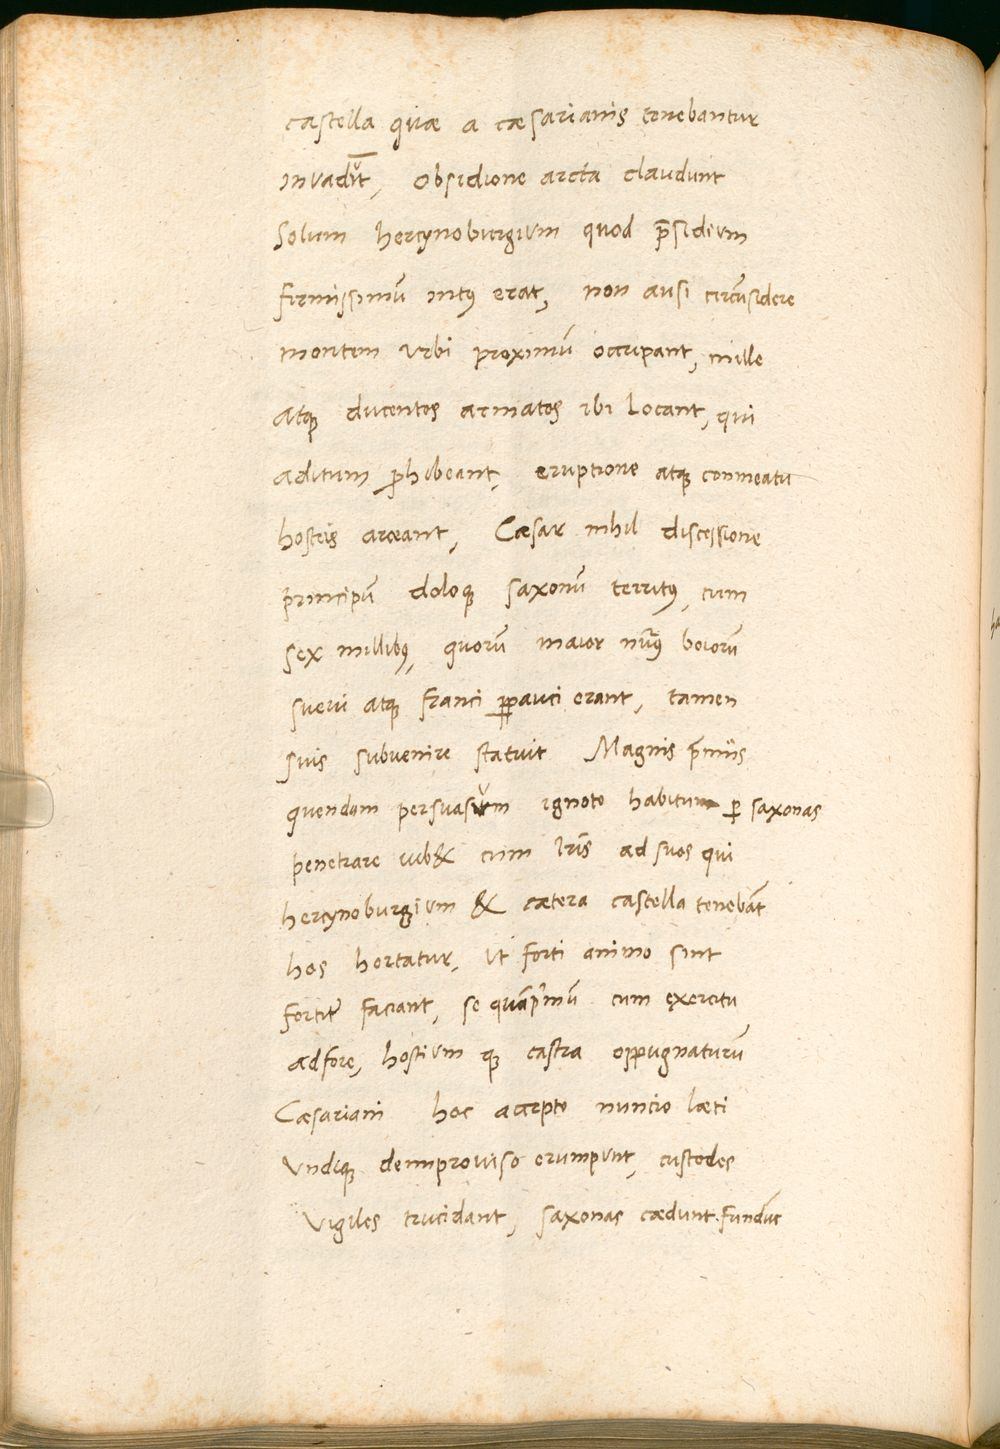 castella quæ a cæsarianis tenebantur
invadūt, Obsidione arcta claudunt
Solum hercynoburgium quod p̄sidium
firmissimū intꝰ erat, non ausi circūsidere
montem urbi proximū occupant, mille
Atqꝫ ducentos armatos ibi Locant, qui
aditum ꝓhibeant, eruptione atqꝫ conmeatu
hosteis arceant, Cæsar nihil discessione
principū doloqꝫ saxonū territꝰ, cum
sex millibꝰ, quorū maior nūꝰ boiorū
suevi atqꝫ franci ꝑpauci erant, tamen
suis subvenire statuit Magnis p̄miis
quendam persuasum ignoto habitum ꝑ saxonas
penetrare iub& cum lr̄is ad suos qui
hercynoburgium & cætera castella tenebāt
hos hortatur, ut forti animo sint
fortit̄ faciant, se quāprimū cum exercitu
adfore, hostium qꝫ castra oppugnaturū
Cæsariani hoc accepto nuncio læti
Undiqꝫ deimproviso erumpunt, custodes
Vigiles trucidant, saxonas cædunt. fundūt